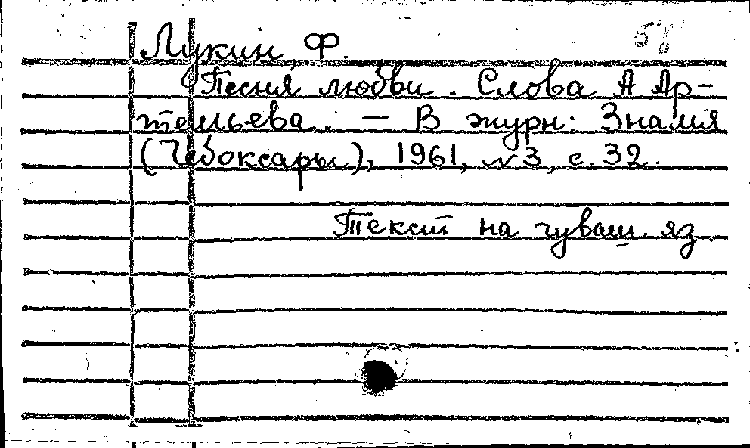 58
Лукин, Ф.
Песня любви. Слова А Ар-
темьева. — В журн: Знамя
(Чебоксары), 1961, №3, с. 32.
Текст на чуваш. яз